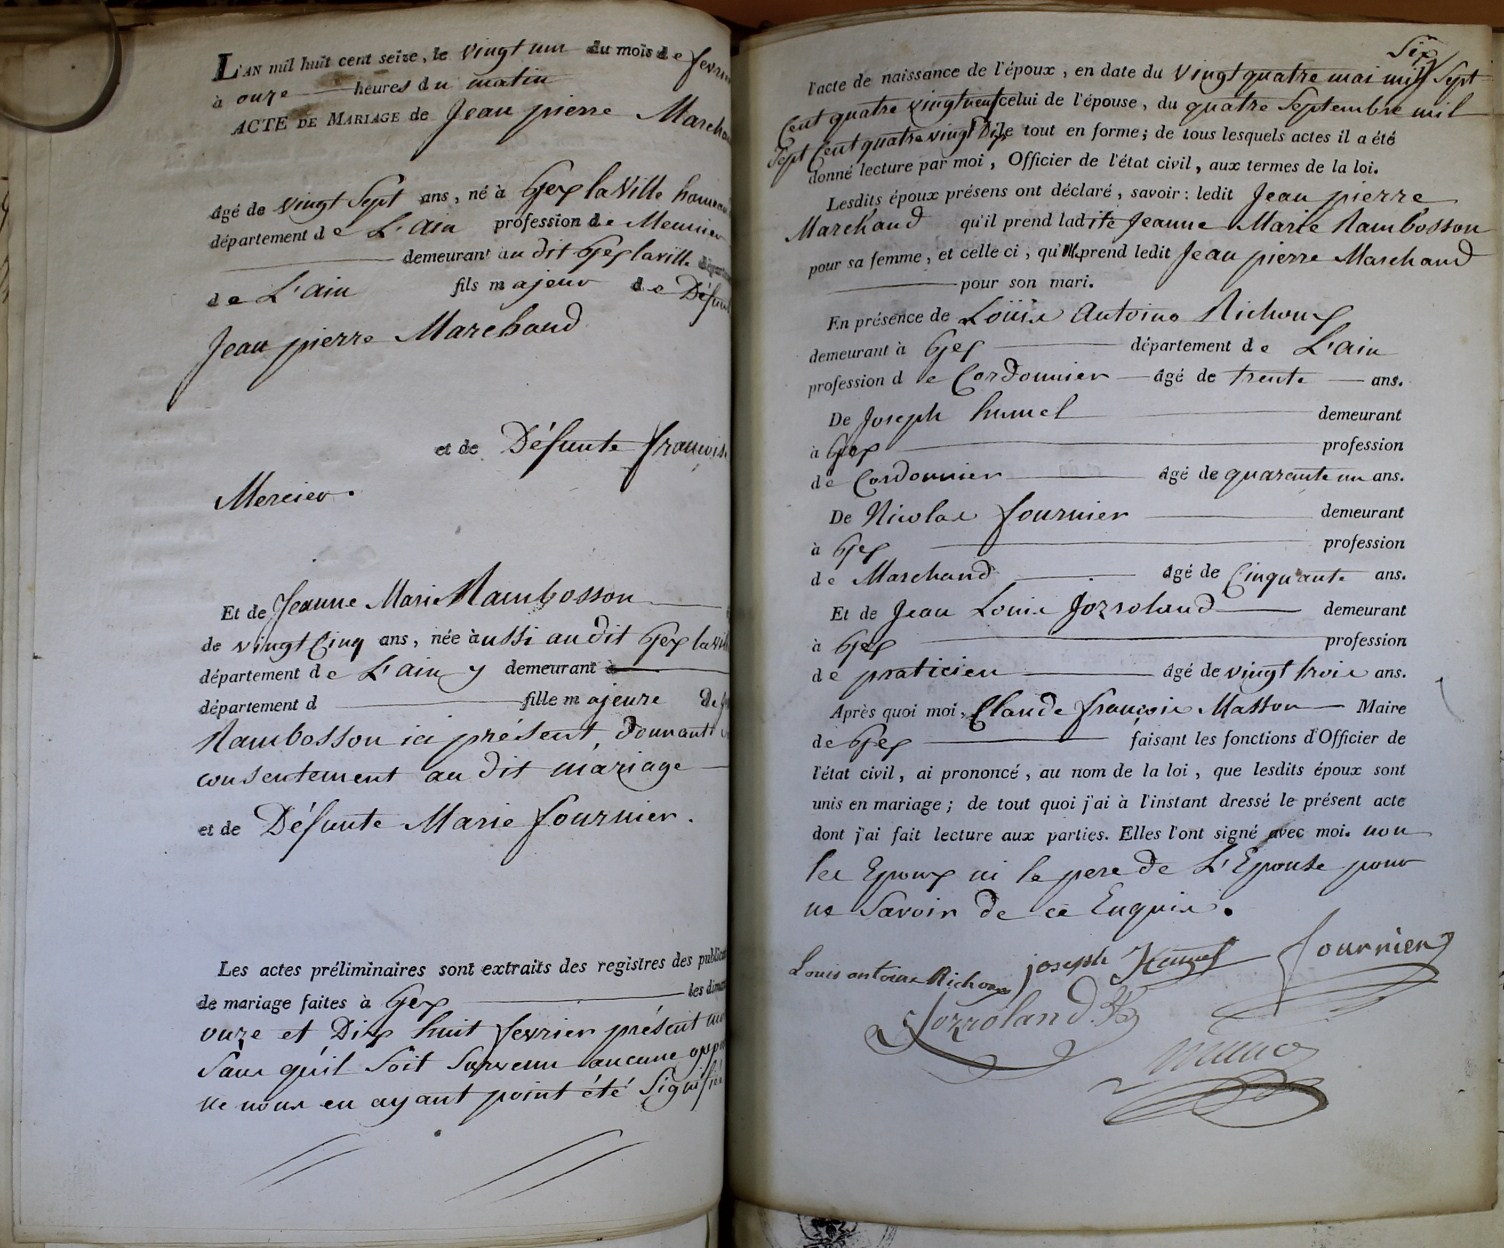 L'AN mil huit cent seize, le vingt un du mois de fevrier
à onze heures du matin
ACTE DE MARIAGE de Jean pierre Marchand
âgé de vingt Sept ans, né à Gex la Ville hameau
département de L'ain profession de Meunier
demeurant au dit Gex la ville
de L'ain fils majeur de Défunt
Jean pierre Marchand
et de Défunte françoise
Mercier.
Et de Jeanne Marie Rambosson
de vingt Cinq ans, née à aussi au dit Gex la ville
département de L'ain y demeurant
département d fille majeure de
Rambosson ici présent, Donnant
consentement au dit mariage
et de Défunte Marie fournier.
Les actes préliminaires sont extraits des registres des publications
de mariage faites à Gex les dimanches
onze et Dix huit fevrier présent mois
Sans qu'il Soit Survenu aucune opposition
ne nous en ayant point été Signifié
Six
l'acte de naissance de l'époux, en date du vingt quatre mai mil Sept
Cent quatre vingt neuf celui de l'épouse, du quatre Septembre mil
Sept Cent quatre vingt Dix le tout en forme; de tous lesquels actes il a été
donné lecture par moi, Officier de l'état civil, aux termes de la loi.
Lesdits époux présens ont déclaré, savoir: ledit Jean pierre
Marchand qu'il prend ladite Jeanne Marie Rambosson
pour sa femme, et celle ci, qu'elle prend ledit Jean pierre Marchand
pour son mari.
En présence de Loüis Antoine Richoux
demeurant à Gex département de L'ain
profession de Cordonnier âgé de trente ans.
De Joseph humel demeurant
à Gex profession
de Cordonnier âgé de quarante un ans.
De Nicolas fournier demeurant
à Gex profession
de Marchand âgé de Cinquante ans.
Et de Jean Louis Jozroland demeurant
à Gex profession
de praticien âgé de vingt trois ans.
Après quoi moi, Claude françois Masson Maire
de Gex faisant les fonctions d'Officier de
l'état civil, ai prononcé, au nom de la loi, que lesdits époux sont
unis en mariage; de tout quoi j'ai à l'instant dressé le présent acte
dont j'ai fait lecture aux parties. Elles l'ont signé avec moi. non
les Epoux ni le pere de L'Epouse pour
ne Savoir de ce Enquis.
Louis antoine Richoux joseph Humel fournier
Jozroland